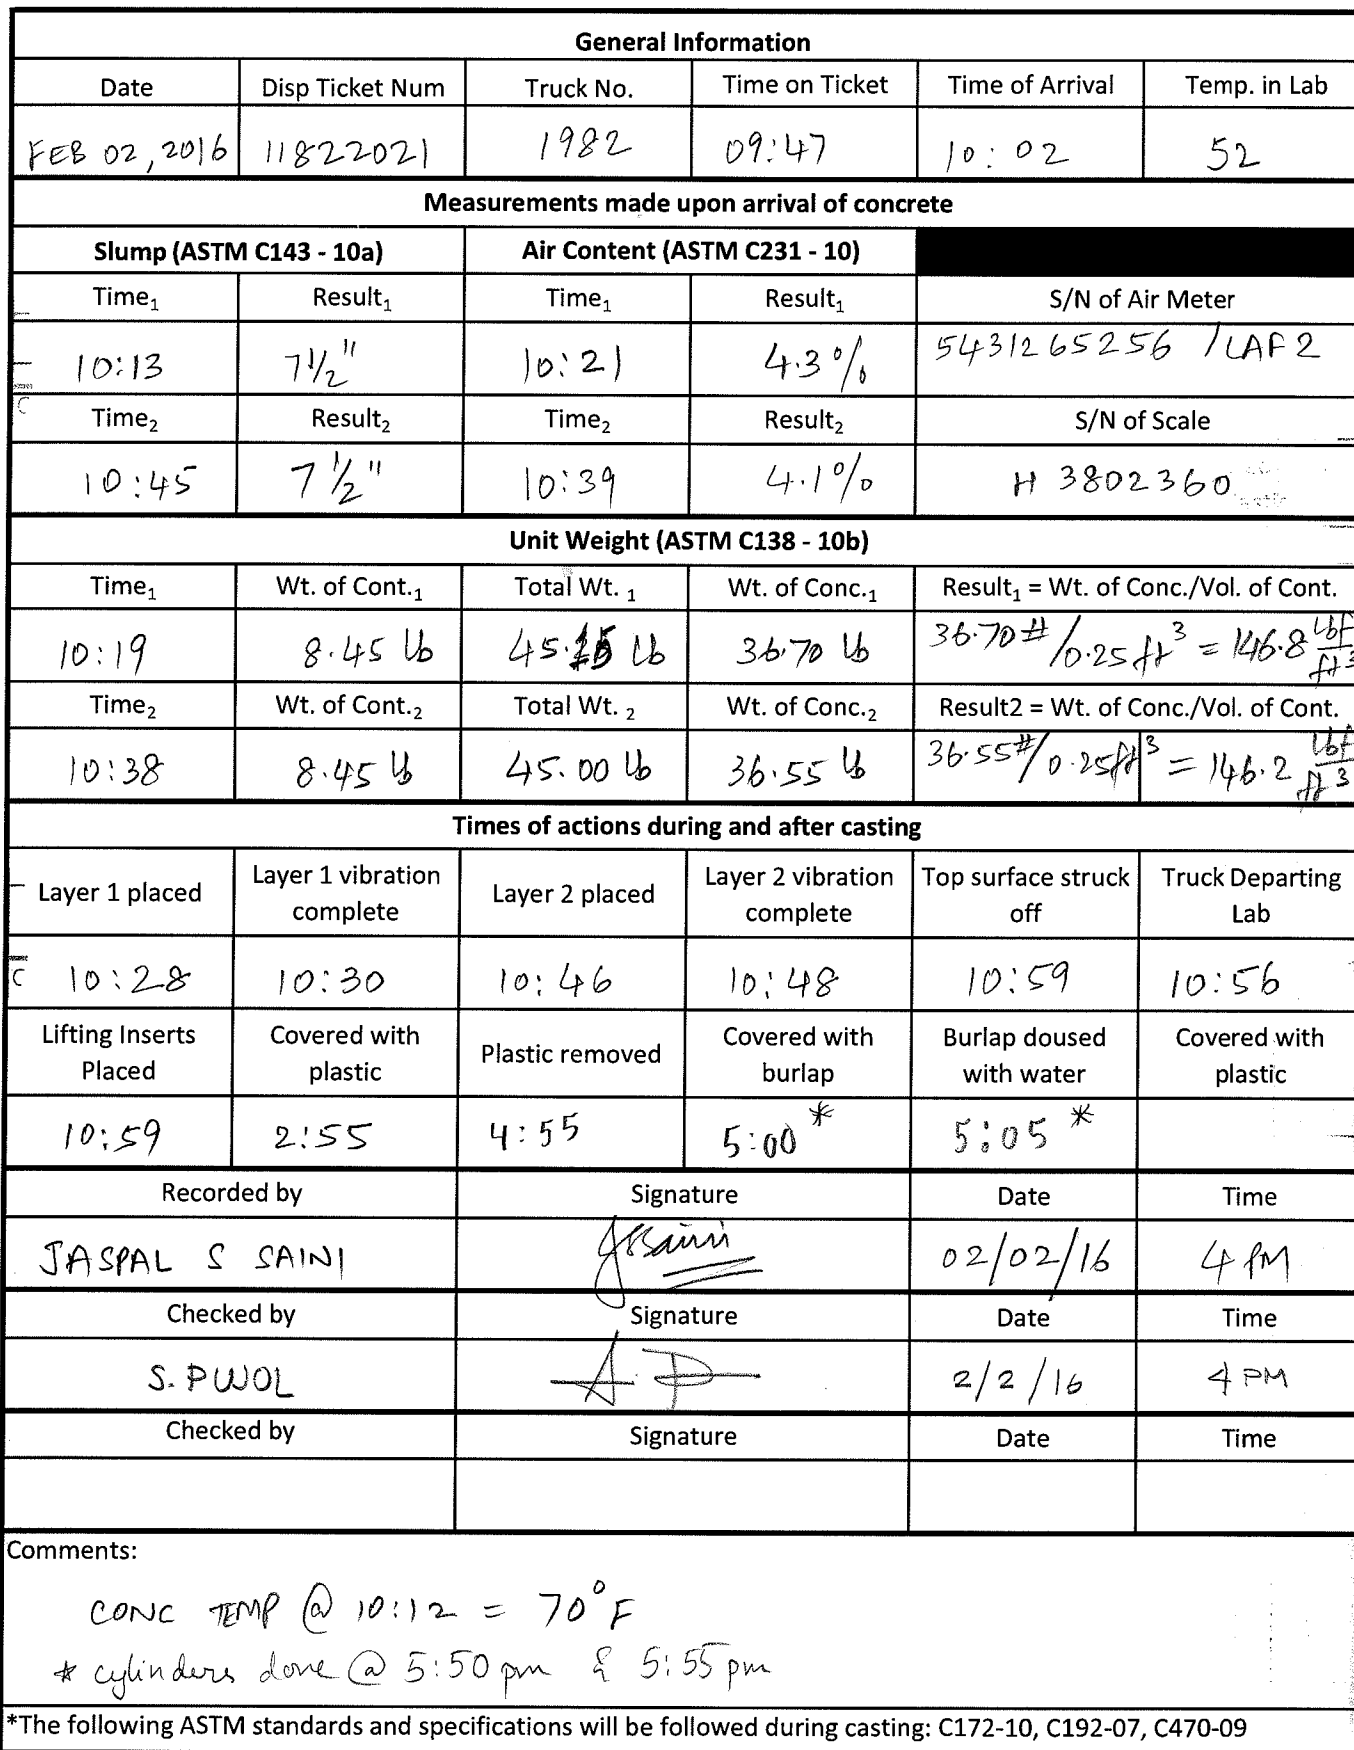 General Information
Date Disp Ticket Num Truck No. Time on Ticket Time of Arrival Temp. in Lab
FEB 02, 2016 11822021 1982 09:47 10:02 52
Measurements made upon arrival of concrete
Slump (ASTM C143 - 10a) Air Content (ASTM C231 - 10)
Time₁ Result₁ Time₁ Result₁ S/N of Air Meter
10:13 7 1/2" 10:21 4.3% 5431265256 /LAF2
Time₂ Result₂ Time₂ Result₂ S/N of Scale
10:45 7 1/2" 10:39 4.1% H 3802360
Unit Weight (ASTM C138 - 10b)
Time₁ Wt. of Cont.₁ Total Wt. ₁ Wt. of Conc.₁ Result₁ = Wt. of Conc./Vol. of Cont.
10:19 8.45 lb 45.15 lb 36.70 lb 36.70#/0.25 ft³ = 146.8 lbf/ft³
Time₂ Wt. of Cont.₂ Total Wt. ₂ Wt. of Conc.₂ Result2 = Wt. of Conc./Vol. of Cont.
10:38 8.45 lb 45.00 lb 36.55 lb 36.55#/0.25ft³ = 146.2 lbf/ft³
Times of actions during and after casting
Layer 1 placed Layer 1 vibration complete Layer 2 placed Layer 2 vibration complete Top surface struck off Truck Departing Lab
10:28 10:30 10:46 10:48 10:59 10:56
Lifting Inserts Placed Covered with plastic Plastic removed Covered with burlap Burlap doused with water Covered with plastic
10:59 2:55 4:55 5:00* 5:05*
Recorded by Signature Date Time
JASPAL S SAINI JSSaini 02/02/16 4 PM
Checked by Signature Date Time
S. PUJOL 2/2/16 4 PM
Checked by Signature Date Time
Comments:
CONC TEMP @ 10:12 = 70°F
* cylinders done @ 5:50 pm & 5:55 pm
*The following ASTM standards and specifications will be followed during casting: C172-10, C192-07, C470-09